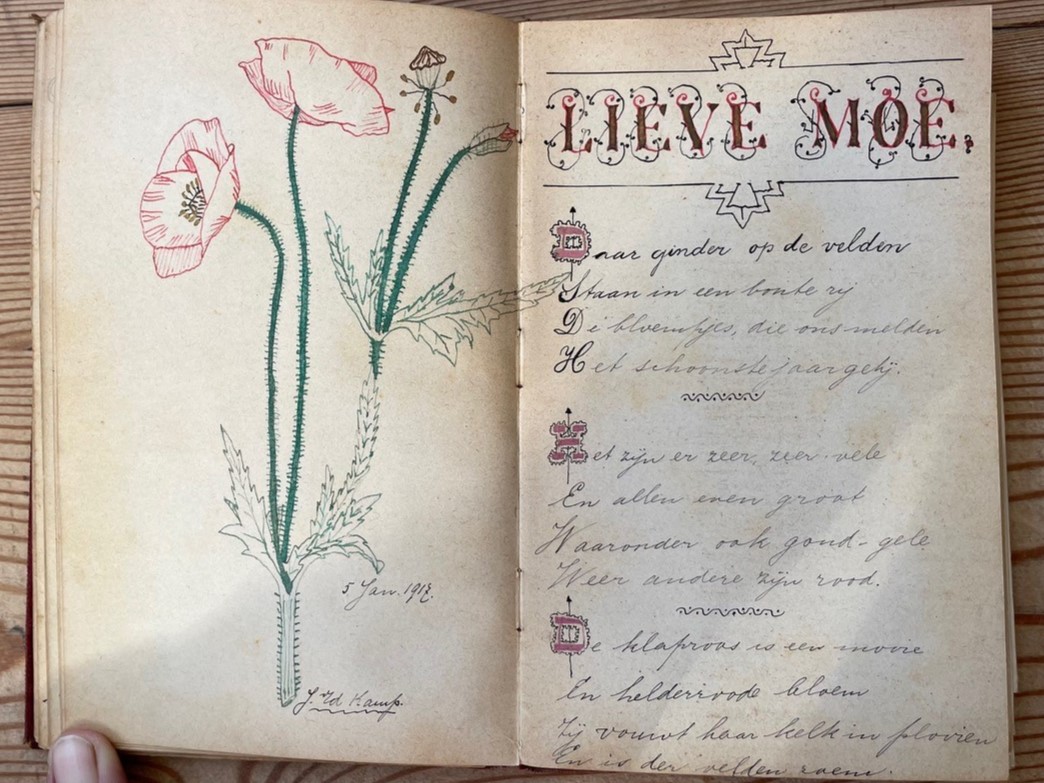 5 Jan. 1917.
J. vd Kamp.
LIEVE MOE.
Daar ginder op de velden
Staan in een bonte rij
De bloempjes, die ons melden
Het schoonste jaargetij.
Het zijn er zeer, zeer vele
En allen even groot
Waaronder ook goud-gele
Weer andere zijn rood.
De klaproos is een mooie
En helderroode bloem
Zij vouwt haar kelk in plooien
En is der velden roem.